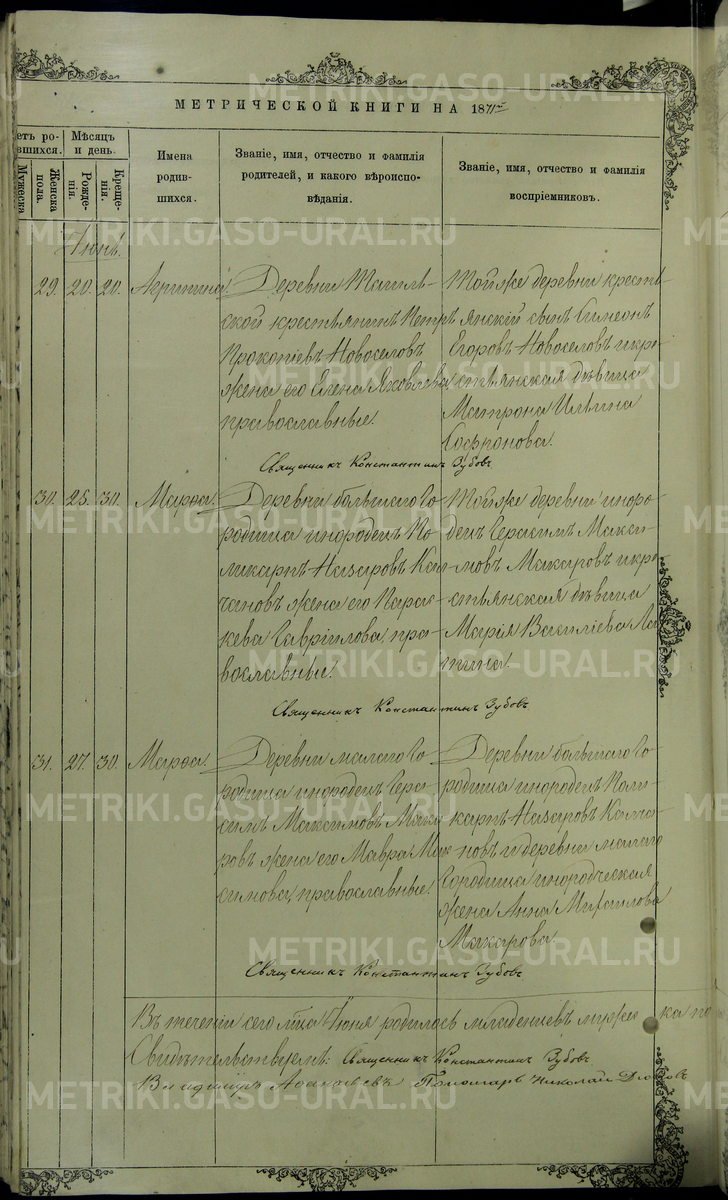 МЕТРИЧЕСКОЙ КНИГИ НА 1871
етъ ро-
вшихся.
Мѣсяцъ
и день.
Мужеска
Женска
пола.
Рожде-
нія.
Креще-
нія.
Имена
родив-
шихся.
Званіе, имя, отчество и фамилія
родителей, и какого вѣроиспо-
вѣданія.
Званіе, имя, отчество и фамилія
воспріемниковъ.
Іюнь.
29. 20. 20. Агрипина
Деревни
ской крестьянинъ Петръ
Прокопіевъ Новоселовъ
жена его Елена Яковлева
православные.
Тойже деревни кресть-
янскій сынъ Симеонъ
Егоровъ Новоселовъ и кре-
стьянская дѣвица
Матрона Ильина
Сафронова.
Священникъ Константинъ Зубовъ
30. 25. 30. Марѳа.
Деревни большаго Го-
родища инородецъ По-
ликарпъ Назаровъ
жена его Парас-
кева Гавріилова пра-
вославные.
Тойже деревни иноро-
децъ Герасимъ Макси-
мовъ Макаровъ и кре-
стьянская дѣвица
Марія Василіева
Священникъ Константинъ Зубовъ
31. 27. 30. Марѳа.
Деревни малаго Го-
родища инородецъ Гера-
симъ Максимовъ Мака-
ровъ жена его Мавра Мак-
симова, православные.
Деревни большаго Го-
родища инородецъ Поли-
карпъ Назаровъ
новъ и деревни малаго
Городища инородческая
жена Анна Михаилова
Макарова
Священникъ Константинъ Зубовъ
Въ теченіи сего мѣца Іюня родилось младенцевъ мужес ка по
Свидѣтельствуемъ: Священникъ Константинъ Зубовъ
Пономарь Николай
METRIKI.GASO-URAL.RU